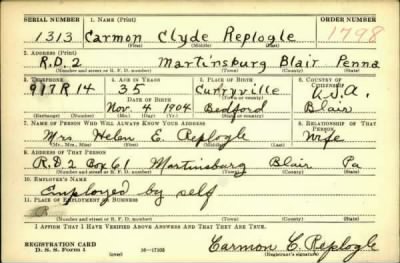 SERIAL NUMBER 1. NAME (Print) ORDER NUMBER
1313 Carmon Clyde Replogle 1798
(First) (Middle) (Last)
2. ADDRESS (Print)
R.D.2 Martinsburg Blair Penna
(Number and street or R. F. D. number) (Town) (County) (State)
3. TELEPHONE 4. AGE IN YEARS 5. PLACE OF BIRTH 6. COUNTRY OF CITIZENSHIP
917R14 35 Curryville U.S.A.
DATE OF BIRTH (Town or county)
Nov. 4 1904 Bedford Blair
(Exchange) (Number) (Mo.) (Day) (Yr.) (State or country)
7. NAME OF PERSON WHO WILL ALWAYS KNOW YOUR ADDRESS 8. RELATIONSHIP OF THAT PERSON
Mrs Helen E. Replogle Wife
(Mr., Mrs., Miss) (First) (Middle) (Last)
9. ADDRESS OF THAT PERSON
R.D.2 Box 61 Martinsburg Blair Pa
(Number and street or R. F. D. number) (Town) (County) (State)
10. EMPLOYER'S NAME
Employed by self
11. PLACE OF EMPLOYMENT OR BUSINESS
(Number and street or R. F. D. number) (Town) (County) (State)
I AFFIRM THAT I HAVE VERIFIED ABOVE ANSWERS AND THAT THEY ARE TRUE.
REGISTRATION CARD
D. S. S. Form 1 (over) 16-17105 Carmon C. Replogle
(Registrant's signature)